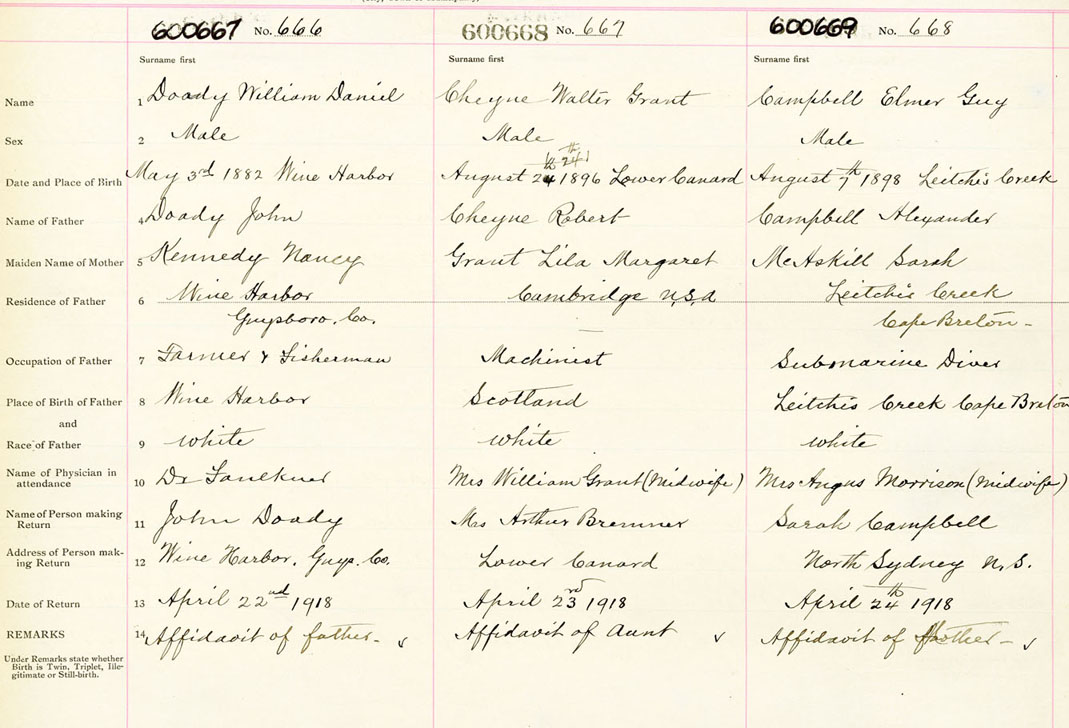 600667 No. 666 600668 No. 667 600669 No. 668
Surname first Surname first Surname first
Name 1 Doody William Daniel Cheyne Walter Grant Campbell Elmer Guy
Sex 2 Male Male Male
Date and Place of Birth 3 May 3rd 1882 Wine Harbor August 24 1896 Lower Canard August 7th 1898 Leitchis Creek
24th
Name of Father 4 Doody John Cheyne Robert Campbell Alexander
Maiden Name of Mother 5 Kennedy Nancy Grant Lila Margaret McAskill Sarah
Residence of Father 6 Wine Harbor Cambridge U.S.A Leitchis Creek
Guysboro. Co. Cape Breton -
Occupation of Father 7 Farmer & Fisherman Machinist Submarine Diver
Place of Birth of Father 8 Wine Harbor Scotland Leitchis Creek Cape Breton
and
Race of Father 9 white white white
Name of Physician in attendance 10 Dr Faulkner Mrs William Grant (Midwife) Mrs Angus Morrison (Midwife)
Name of Person making Return 11 John Doody Mrs Arthur Bremner Sarah Campbell
Address of Person making Return 12 Wine Harbor. Guys. Co. Lower Canard North Sydney N.S.
Date of Return 13 April 22nd 1918 April 23rd 1918 April 24th 1918
REMARKS 14 Affidavit of father - Affidavit of Aunt Affidavit of Mother -
Under Remarks state whether
Birth is Twin, Triplet, Ille-
gitimate or Still-birth.